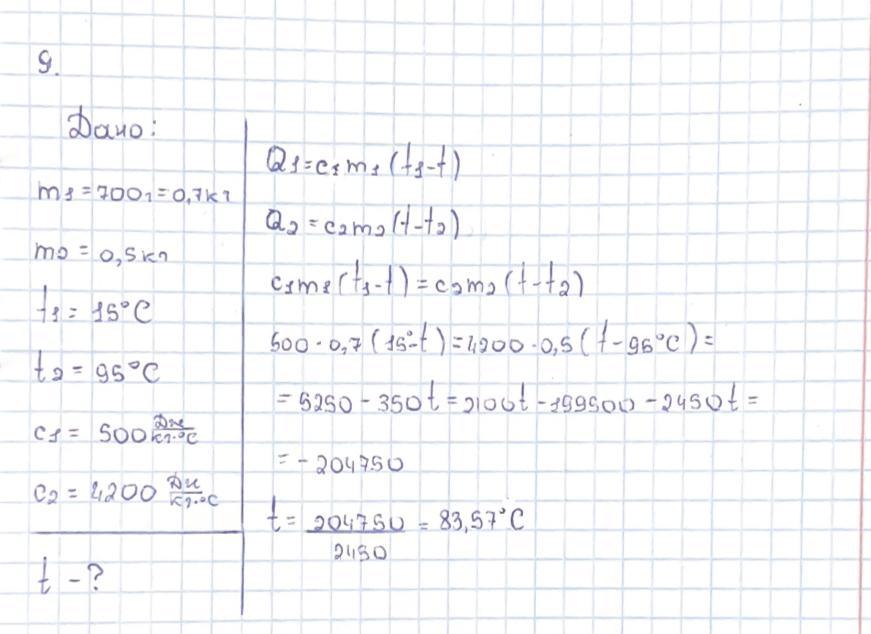 9.
Дано:
m₁ = 700г = 0,7кг
m₂ = 0,5кг
t₁ = 15°C
t₂ = 95°C
c₁ = 500 Дж/кг·°C
c₂ = 4200 Дж/кг·°C
t - ?
Q₁ = c₁m₁(t₁-t)
Q₂ = c₂m₂(t-t₂)
c₁m₁(t₁-t) = c₂m₂(t-t₂)
500·0,7(15°-t) = 4200·0,5(t-95°C) =
= 5250 - 350t = 2100t - 199500 - 2450t =
= - 204750
t = 204750/2450 = 83,57°C